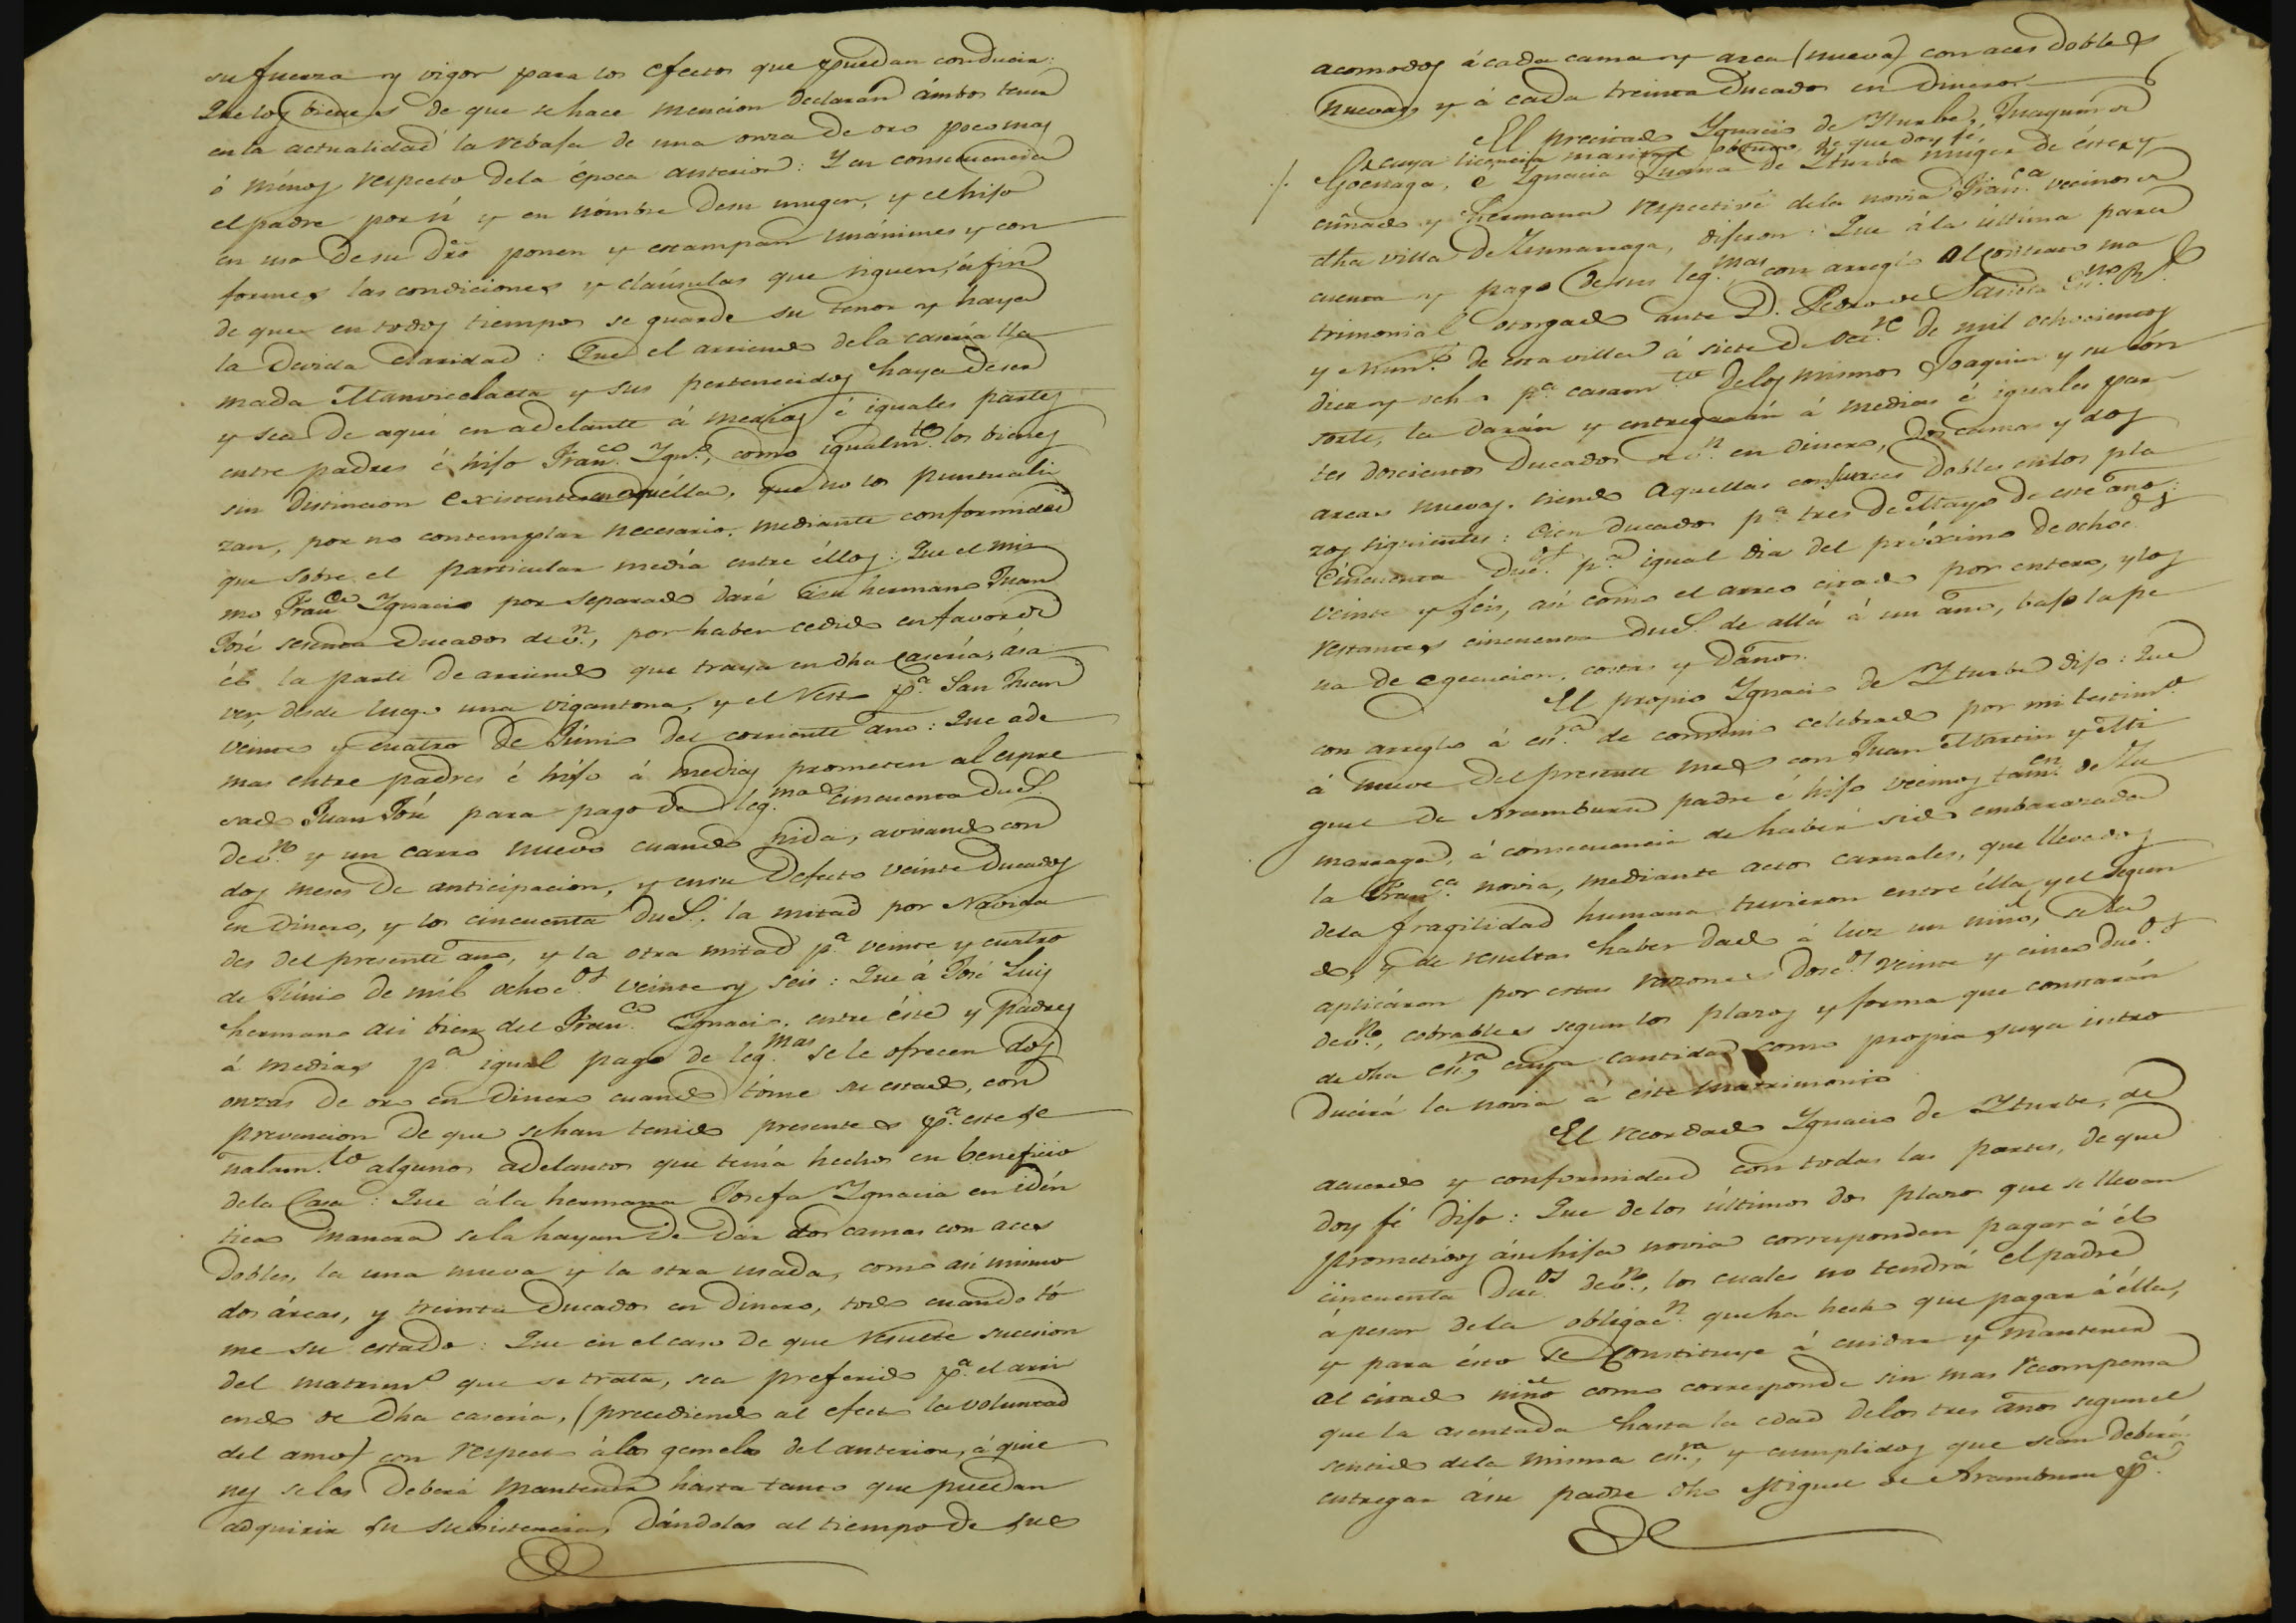 su fuerza y vigor para los efectos que puedan conducir:
Que los bienes de que se hace mencion declaran ámbos tener
en la actualidad la rebaja de una onza de oro poco mas
ó ménos respecto dela época anterior: Y en consecuencia
el padre por sí y en nómbre desu muger, y el hijo
en uso desu dro ponen y estampan unánimes y con
formes las condiciones y cláusulas que siguen, á fin
de que en todos tiempos se guarde su tenor y haya
la devida claridad: Que el arriendo dela casería lla
mada y sus pertenecidos haya deser
y sea de aquí en adelante á medias é iguales partes
entre padres é hijo Franco. Igno., como igualmte. los bienes
sin distincion existentes en aquélla, que no los puntuali
zan, por no contemplar necesario, mediante conformidad
que sobre el particular média entre éllos: Que el mis
mo Franco Ignacio por separado dará á su hermano Juan
José sesenta Ducados de vn., por haber cedido en favor de
él la parte de arriendo que traya en dha Casería, ása
ver, desde luego una vigantona, y el resto pa. San Juan
veinte y cuatro de Júnio del corriente año: Que ade
mas entre padres é hijo á medias prometen al expre
sado Juan José para pago de legmas cincuenta Dus.
de vn. y un carro nuevo cuando pida, avisando con
dos meses de anticipacion, y en su defecto veinte Ducados
en dinero, y los cincuenta Dus. la mitad por Navida
des del presente año, y la otra mitad pa. veinte y cuatro
de Júnio de mil ochocos. veinte y seis: Que á José Luis
hermano asi bien del Franco. Ignacio, entre éste y padres
á medias pa. igual pago de legmas. se le ofrecen dos
onzas de oro en dinero cuando tóme su estado, con
prevencion de que se han tenido presentes pa. este se
ñalamto. algunos adelantos que tenía hechos en beneficio
dela Casa: Que á la hermana Josefa Ignacia en idén
tica manera se la hayan de dar dos camas con aces
dobles, la una nueva y la otra usada, como asi mismo
dos árcas, y treinta Ducados en dinero, todo cuando tó
me su estado: Que en el caso de que resulte sucesion
del matrimo. que se trata, sea preferido pa. el arri
endo de dha casería, (precediendo al efecto la voluntad
del amo) con respecto á las gemelas del anterior, á quie
nes se las deberá mantener hasta tanto que puedan
adquirir su subsistencia, dándolas al tiempo de sus
acomodos á cada cama y arca (nueva) con aces dobles
nuevas, y á cada treinta Ducados en dinero
El precitado Ignacio de Yturbe, Juaquin de
cuya licencia marital de que doy fé
Goenaga, é Ignacia Juana de Yturbe muger de éste y
cuñado y hermana respective dela novia Franca. vecinos de
dha villa de Zumarraga, dijeron: Que á la última para
cuenta y pago desus legmas con arreglo al contrato ma
trimonial otorgado ante D. Pedro de Esno. Rl.
y Numo. de esta villa á siete de de mil ochocientos
diez y ocho pa. casamto delos mismos Joaquin y su con
sorte, la darán y entregarán á medias é iguales par
tes doscientos Ducados de vn. en dinero, dos camas y dos
arcas nuevas, siendo aquellas con aces dobles en los pla
zos siguientes: cien ducados pa. tres de Mayo de este año:
Cincuenta Ducs. pa. igual dia del próximo de ochocos
veinte y seis, asi como el arreo citado por entero, y los
restantes cincuenta Dus. de allá á un año, bajo la pe
na de egecucion, costas y daños.
El propio Ignacio de Yturbe dijo: Que
con arreglo á esra. de convenio celebrado por mi testimo.
á nueve del presente mes con Juan Martin y Mi
guel de Aramburu padre é hijo vecinos tamen. de Zu
marraga, á consecuencia de haber sido embarazada
la Franca. novia, mediante actos carnales, que llevados
dela fragilidad humana tuvieron entre élla y el segun
do, y de resultas haber dado á luz un niño, se la
aplicáron por estas razones doscos. veinte y cinco Ducos
de vn., cobrables segun los plazos y forma que constarán
de dha esra, cuya cantidad como propia suya intro
ducirá la novia á éste matrimonio
El recordado Ignacio de Yturbe, de
acuerdo y conformidad con todas las partes, de que
doy fé dijo: Que de los últimos dos plazos que se llevan
prometidos ásu hija novia corresponden pagar á él
cincuenta Ducos de vn., los cuales no tendrá el padre
á pesar dela obligacn. que ha hecho que pagar á élla,
y para ésto se Constituye á cuidar y mantener
al citado niño como corresponde sin mas recompensa
que la asentada hasta la edad delos tres años segun el
sentido dela misma esra, y cumplidos que sean deberá
entregar á su padre dho Miguel de Aramburu pa.